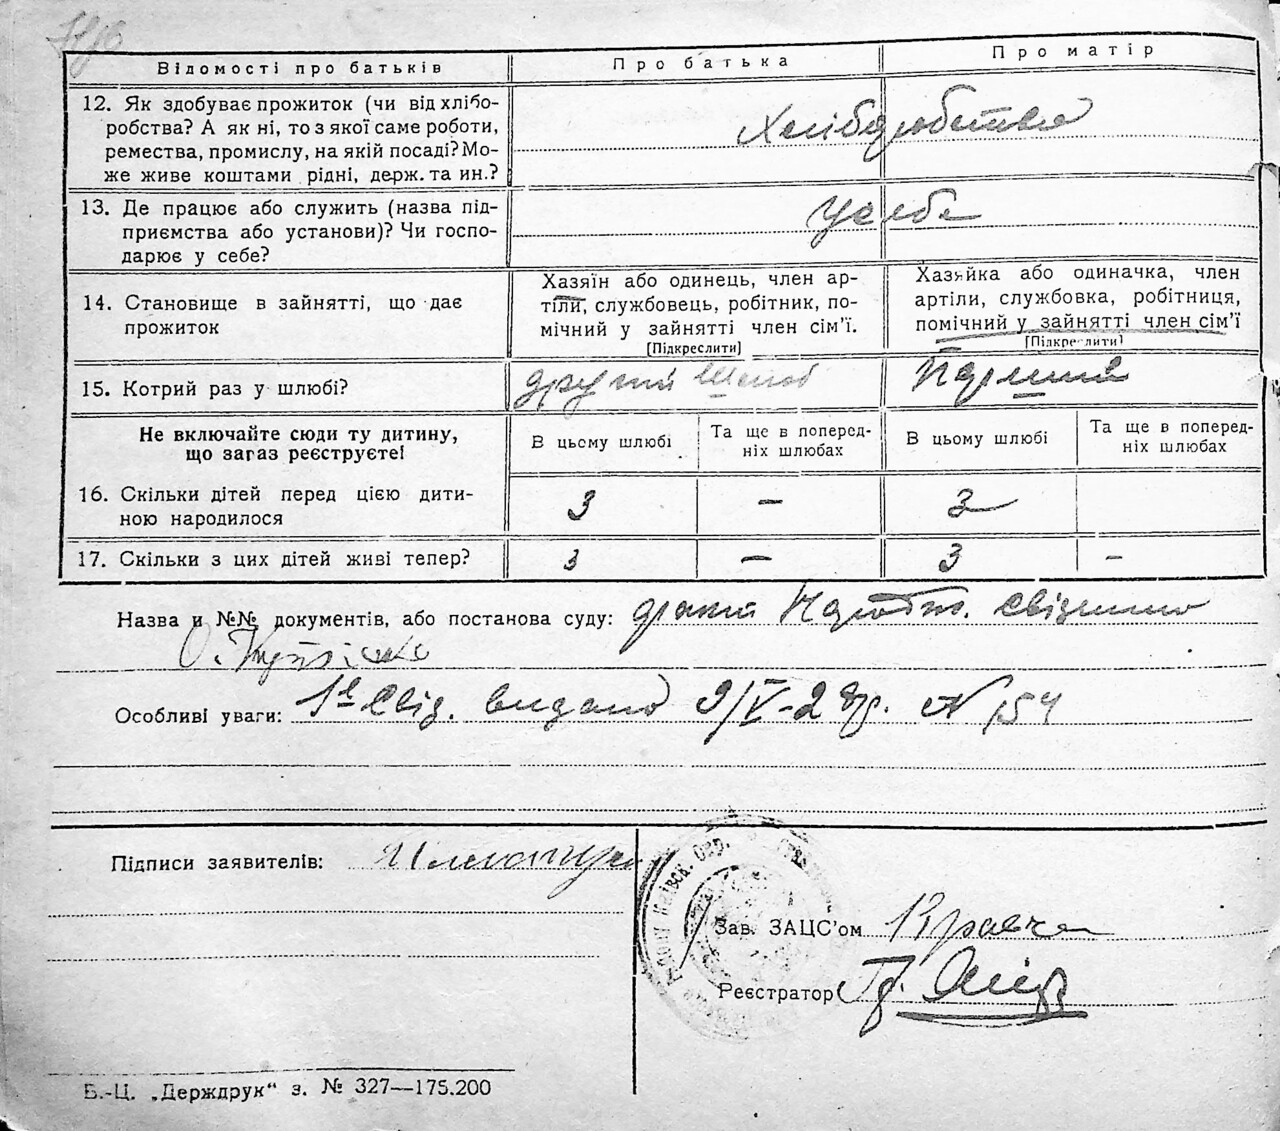 Відомості про батьків
Про батька
Про матір
12. Як здобуває прожиток (чи від хлібо-
робства? А як ні, то з якої саме роботи,
ремества, промислу, на якій посаді? Мо-
же живе коштами рідні, держ. та ин.?
Хліборобство
13. Де працює або служить (назва під-
приємства або установи)? Чи госпо-
дарює у себе?
У себе
14. Становище в зайнятті, що дає
прожиток
Хазяїн або одинець, член ар-
тіли, службовець, робітник, по-
мічний у зайнятті член сім'ї.
[Підкреслити]
Хазяйка або одиначка, член
артіли, службовка, робітниця,
помічний у зайнятті член сім'ї
[Підкреслити]
15. Котрий раз у шлюбі?
другий шлюб
Перший
Не включайте сюди ту дитину,
що загаз реєструєте!
В цьому шлюбі
Та ще в поперед-
ніх шлюбах
В цьому шлюбі
Та ще в поперед-
ніх шлюбах
16. Скільки дітей перед цією дити-
ною народилося
3 — 3
17. Скільки з цих дітей живі тепер?
3 — 3 —
Назва и №№ документів, або постанова суду:
Особливі уваги: Свід. видано 9/IV-28р. № 154
Підписи заявителів:
Київск. Окр.
Зав. ЗАЦС'ом Кравче
Реєстратор
Б.-Ц. „Держдрук“ з. № 327—175.200